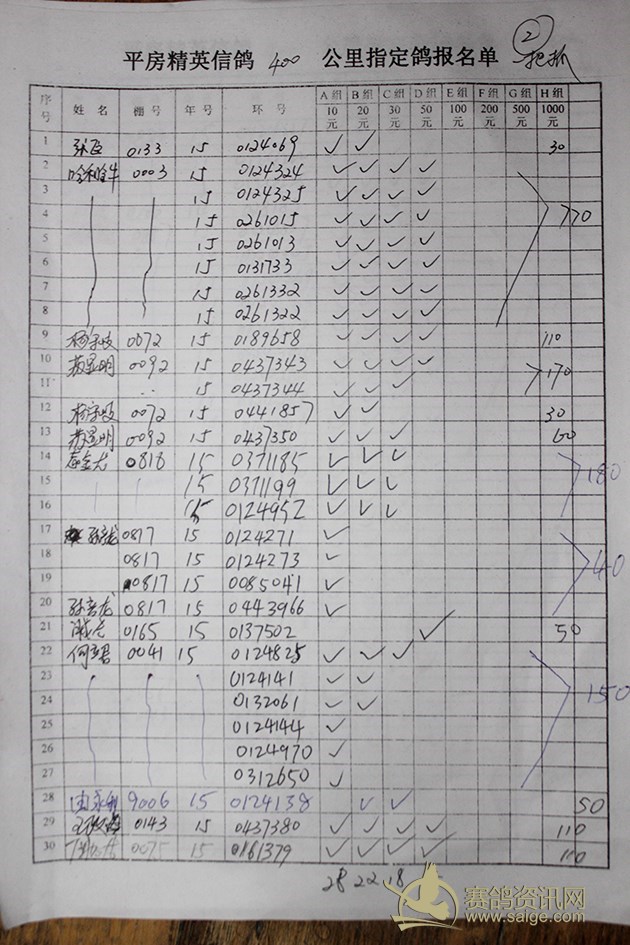 ②
平房精英信鸽 400 公里指定鸽报名单
序号 姓名 棚号 年号 环号 A组10元 B组20元 C组30元 D组50元 E组100元 F组200元 G组500元 H组1000元
1 0133 15 0124069 ✓ ✓ 30
2 0003 15 0124324 ✓ ✓ ✓ ✓
3 15 0124325 ✓ ✓ ✓ ✓
4 15 0261015 ✓ ✓ ✓ ✓ 770
5 15 0261013 ✓ ✓ ✓ ✓
6 15 0131733 ✓ ✓ ✓ ✓
7 15 0261332 ✓ ✓ ✓ ✓
8 15 0261322 ✓ ✓ ✓ ✓
9 0072 15 0189658 ✓ ✓ ✓ ✓ 110
10 0092 15 0437343 ✓ ✓ ✓ ✓ 170
11 15 0437344 ✓ ✓ ✓
12 0072 15 0441857 ✓ ✓ 30
13 0092 15 0437350 ✓ ✓ ✓ 60
14 0818 15 0371185 ✓ ✓ ✓ 180
15 15 0371199 ✓ ✓ ✓
16 15 0124952 ✓ ✓ ✓
17 0817 15 0124271 ✓
18 0817 15 0124273 ✓ 40
19 0817 15 0085041 ✓
20 0817 15 0443966 ✓
21 0165 15 0137502 ✓ 50
22 0041 15 0124825 ✓ ✓ ✓
23 0124141 ✓ ✓ 150
24 0132061 ✓ ✓
25 0124144 ✓
26 0124970 ✓
27 0312650 ✓
28 9006 15 0124138 ✓ ✓ 50
29 0143 15 0437380 ✓ ✓ ✓ ✓ 110
30 0075 15 0161379 ✓ ✓ ✓ ✓ 110
28 22 18
赛鸽资讯网
www.saige.com